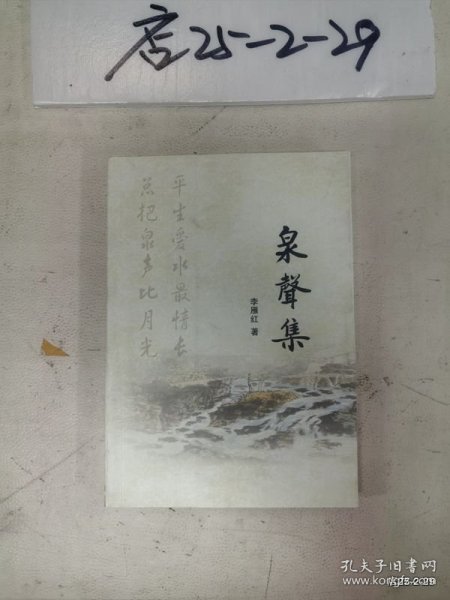 店25-2-29
泉聲集
李雁紅 著
平生愛水最情长
总把泉声比月光
孔夫子旧书网
www.kongfz.com
店25-2-29